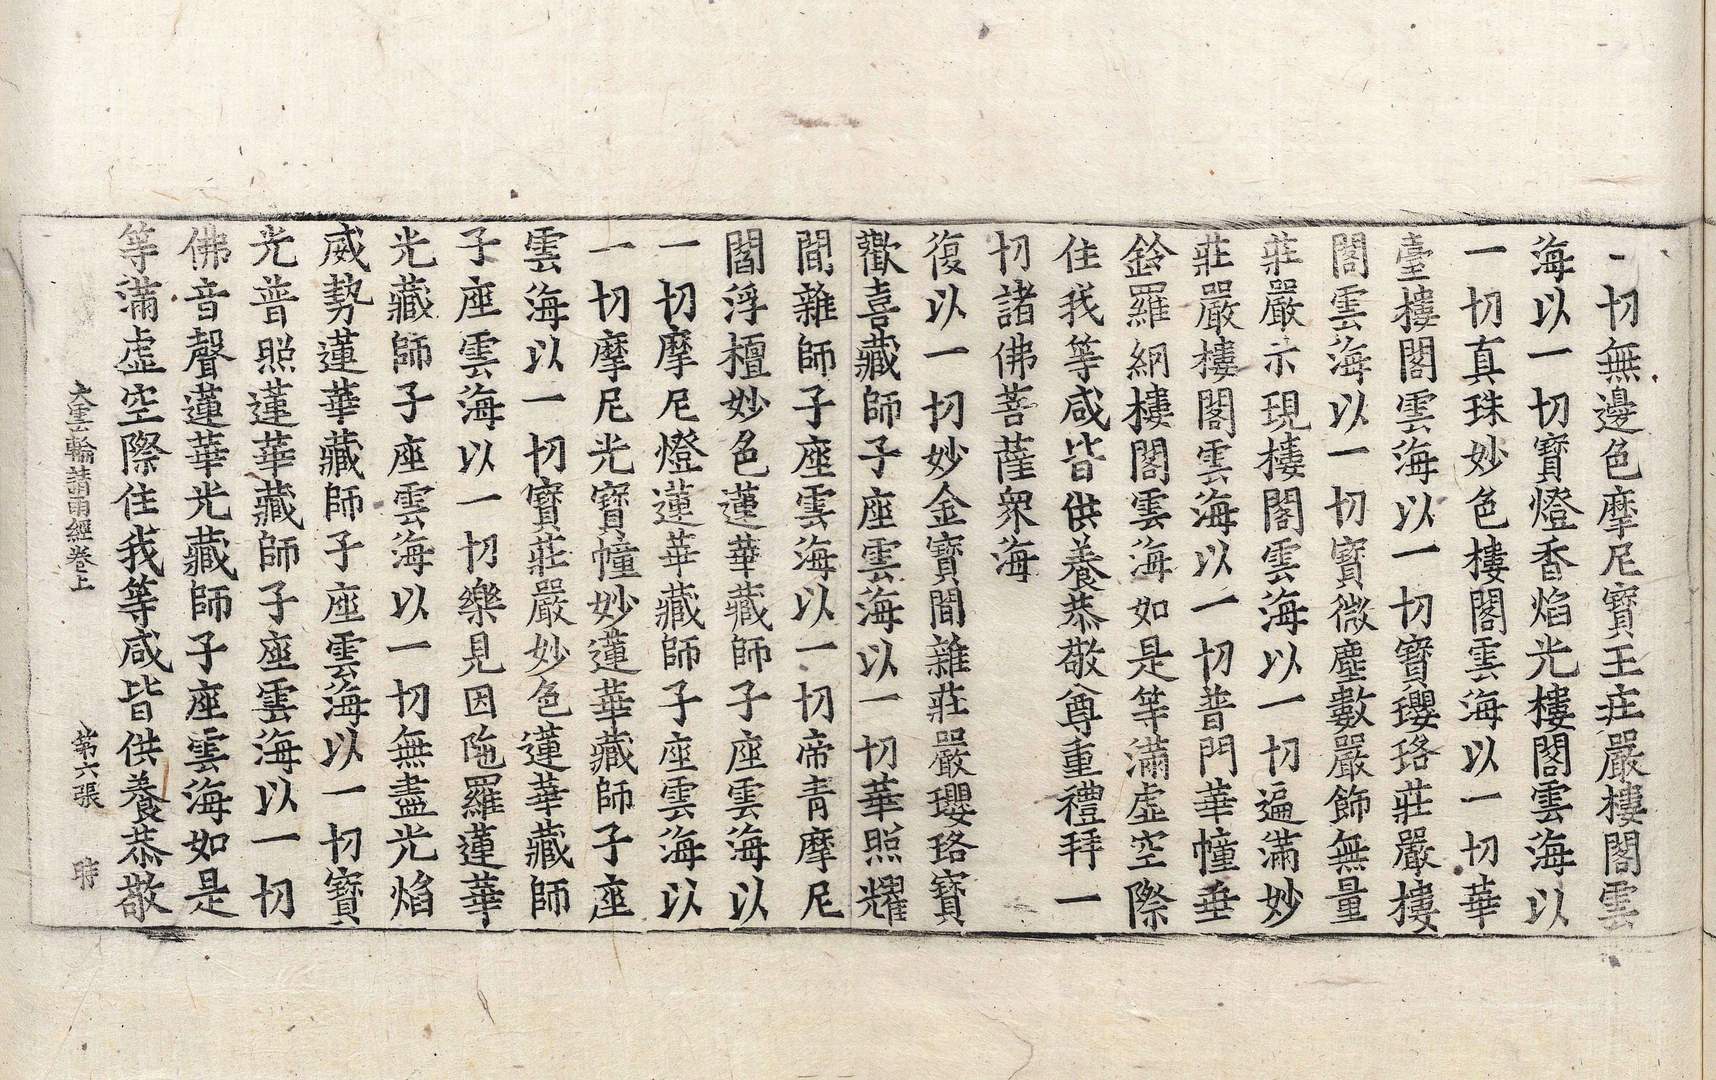 一切無邊色摩尼寶王庄嚴樓閣雲
海以一切寶燈香焰光樓閣雲海以
一切真珠妙色樓閣雲海以一切華
臺樓閣雲海以一切寶瓔珞莊嚴樓
閣雲海以一切寶微塵數嚴飾無量
莊嚴示現樓閣雲海以一切遍滿妙
莊嚴樓閣雲海以一切普門華幢垂
鈴羅網樓閣雲海如是等滿虛空際
住我等咸皆供養恭敬尊重禮拜一
切諸佛菩薩衆海
復以一切妙金寶間雜莊嚴瓔珞寶
歡喜藏師子座雲海以一切華照耀
間雜師子座雲海以一切帝青摩尼
閻浮檀妙色蓮華藏師子座雲海以
一切摩尼燈蓮華藏師子座雲海以
一切摩尼光寶幢妙蓮華藏師子座
雲海以一切寶莊嚴妙色蓮華藏師
子座雲海以一切樂見因陁羅蓮華
光藏師子座雲海以一切無盡光焰
威勢蓮華藏師子座雲海以一切寶
光普照蓮華藏師子座雲海以一切
佛音聲蓮華光藏師子座雲海如是
等滿虛空際住我等咸皆供養恭敬
大雲輪請雨經卷上 第六張 時